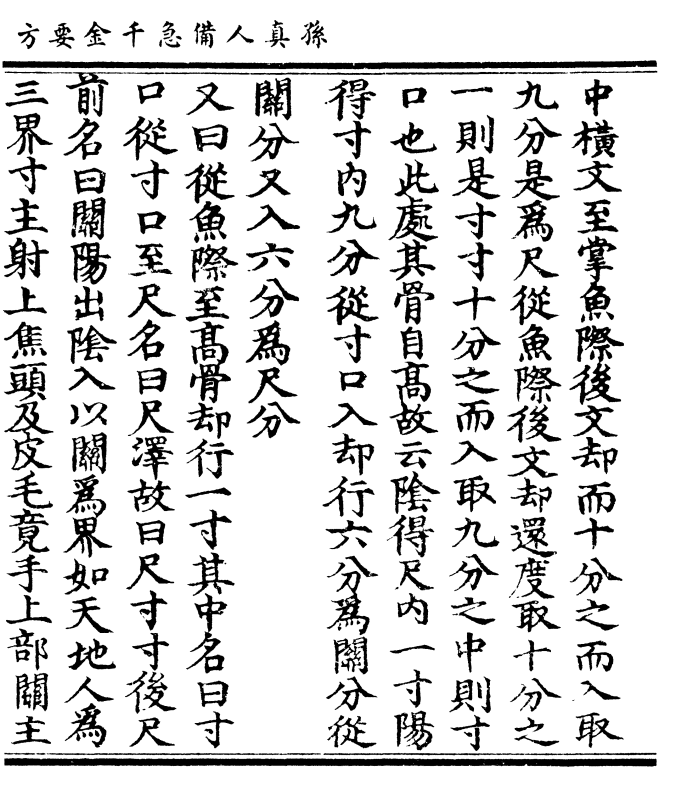 孫真人備急千金要方
中橫文至掌魚際後文却而十分之而入取
九分是為尺從魚際後文却還度取十分之
一則是寸寸十分之而入取九分之中則寸
口也此處其骨自高故云陰得尺內一寸陽
得寸內九分從寸口入却行六分為關分從
關分又入六分為尺分
又曰從魚際至高骨却行一寸其中名曰寸
口從寸口至尺名曰尺澤故曰尺寸寸後尺
前名曰關陽出陰入以關為界如天地人為
三界寸主射上焦頭及皮毛竟手上部關主